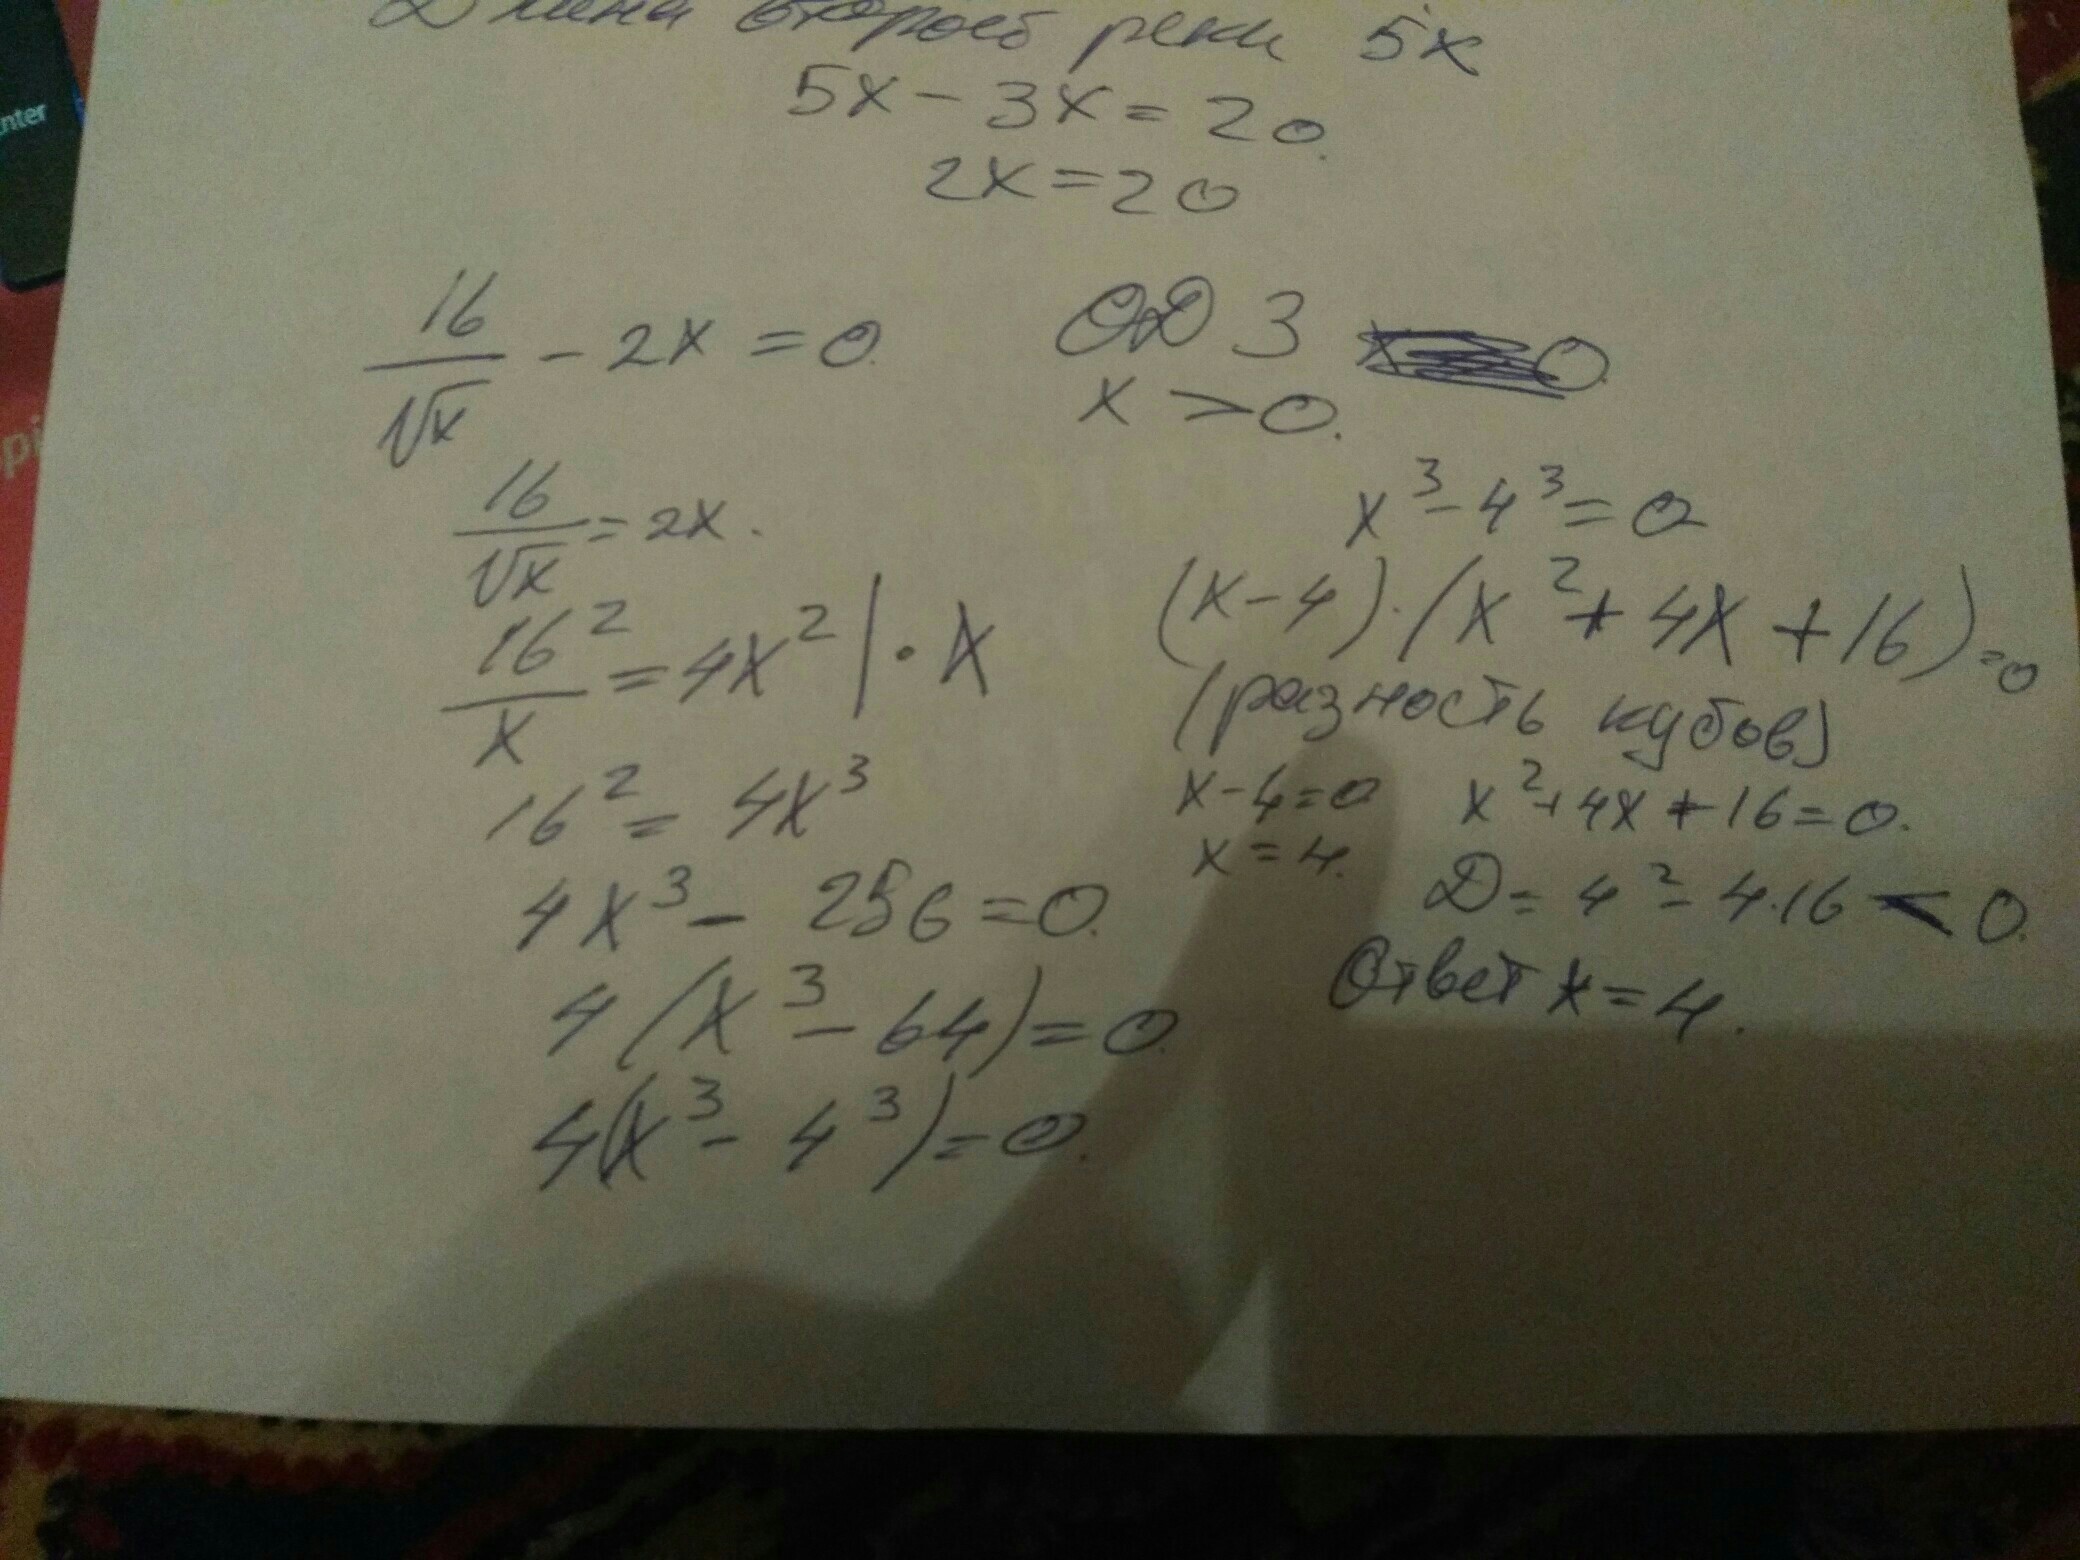 Длина второй реки 5x
5x - 3x = 20.
2x = 20
nter
pi
16/√x - 2x = 0.
16/√x = 2x.
16²/x = 4x² | · x
16² = 4x³
4x³ - 256 = 0.
4(x³ - 64) = 0.
4(x³ - 4³) = 0.
ОДЗ
x > 0.
x³ - 4³ = 0
(x - 4) · (x² + 4x + 16) = 0
(разность кубов)
x - 4 = 0 x² + 4x + 16 = 0.
x = 4. D = 4² - 4·16 < 0.
Ответ x = 4.